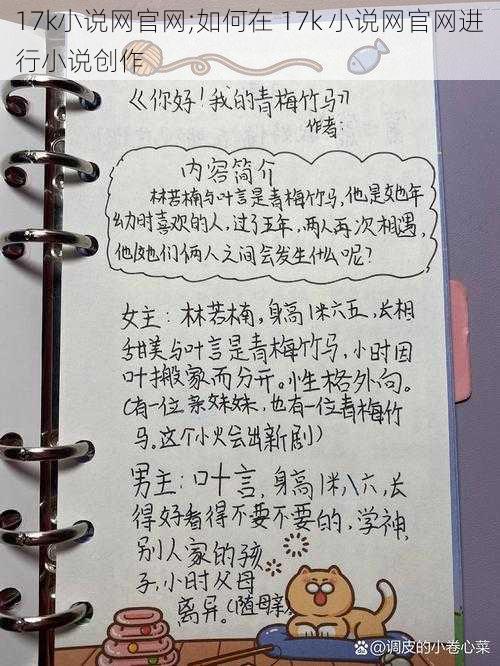 17k小说网官网;如何在 17k 小说网官网进
行小说创作
《你好！我的青梅竹马》
作者:
内容简介
林若楠与叶言是青梅竹马，他是她年
幼时喜欢的人，过了五年，两人再次相遇，
他她们俩人之间会发生什么呢？
女主：林若楠，身高1米六五，长相
甜美与叶言是青梅竹马，小时因
叶搬家而分开。小性格外向。
(有一位亲妹妹，也有一位青梅竹
马。这个小火会出新剧)
男主：叶言，身高1米八六，长
得好看得不要不要的，学神，
别人家的孩
子，小时父母
离异。(随母亲
@调皮的小卷心菜